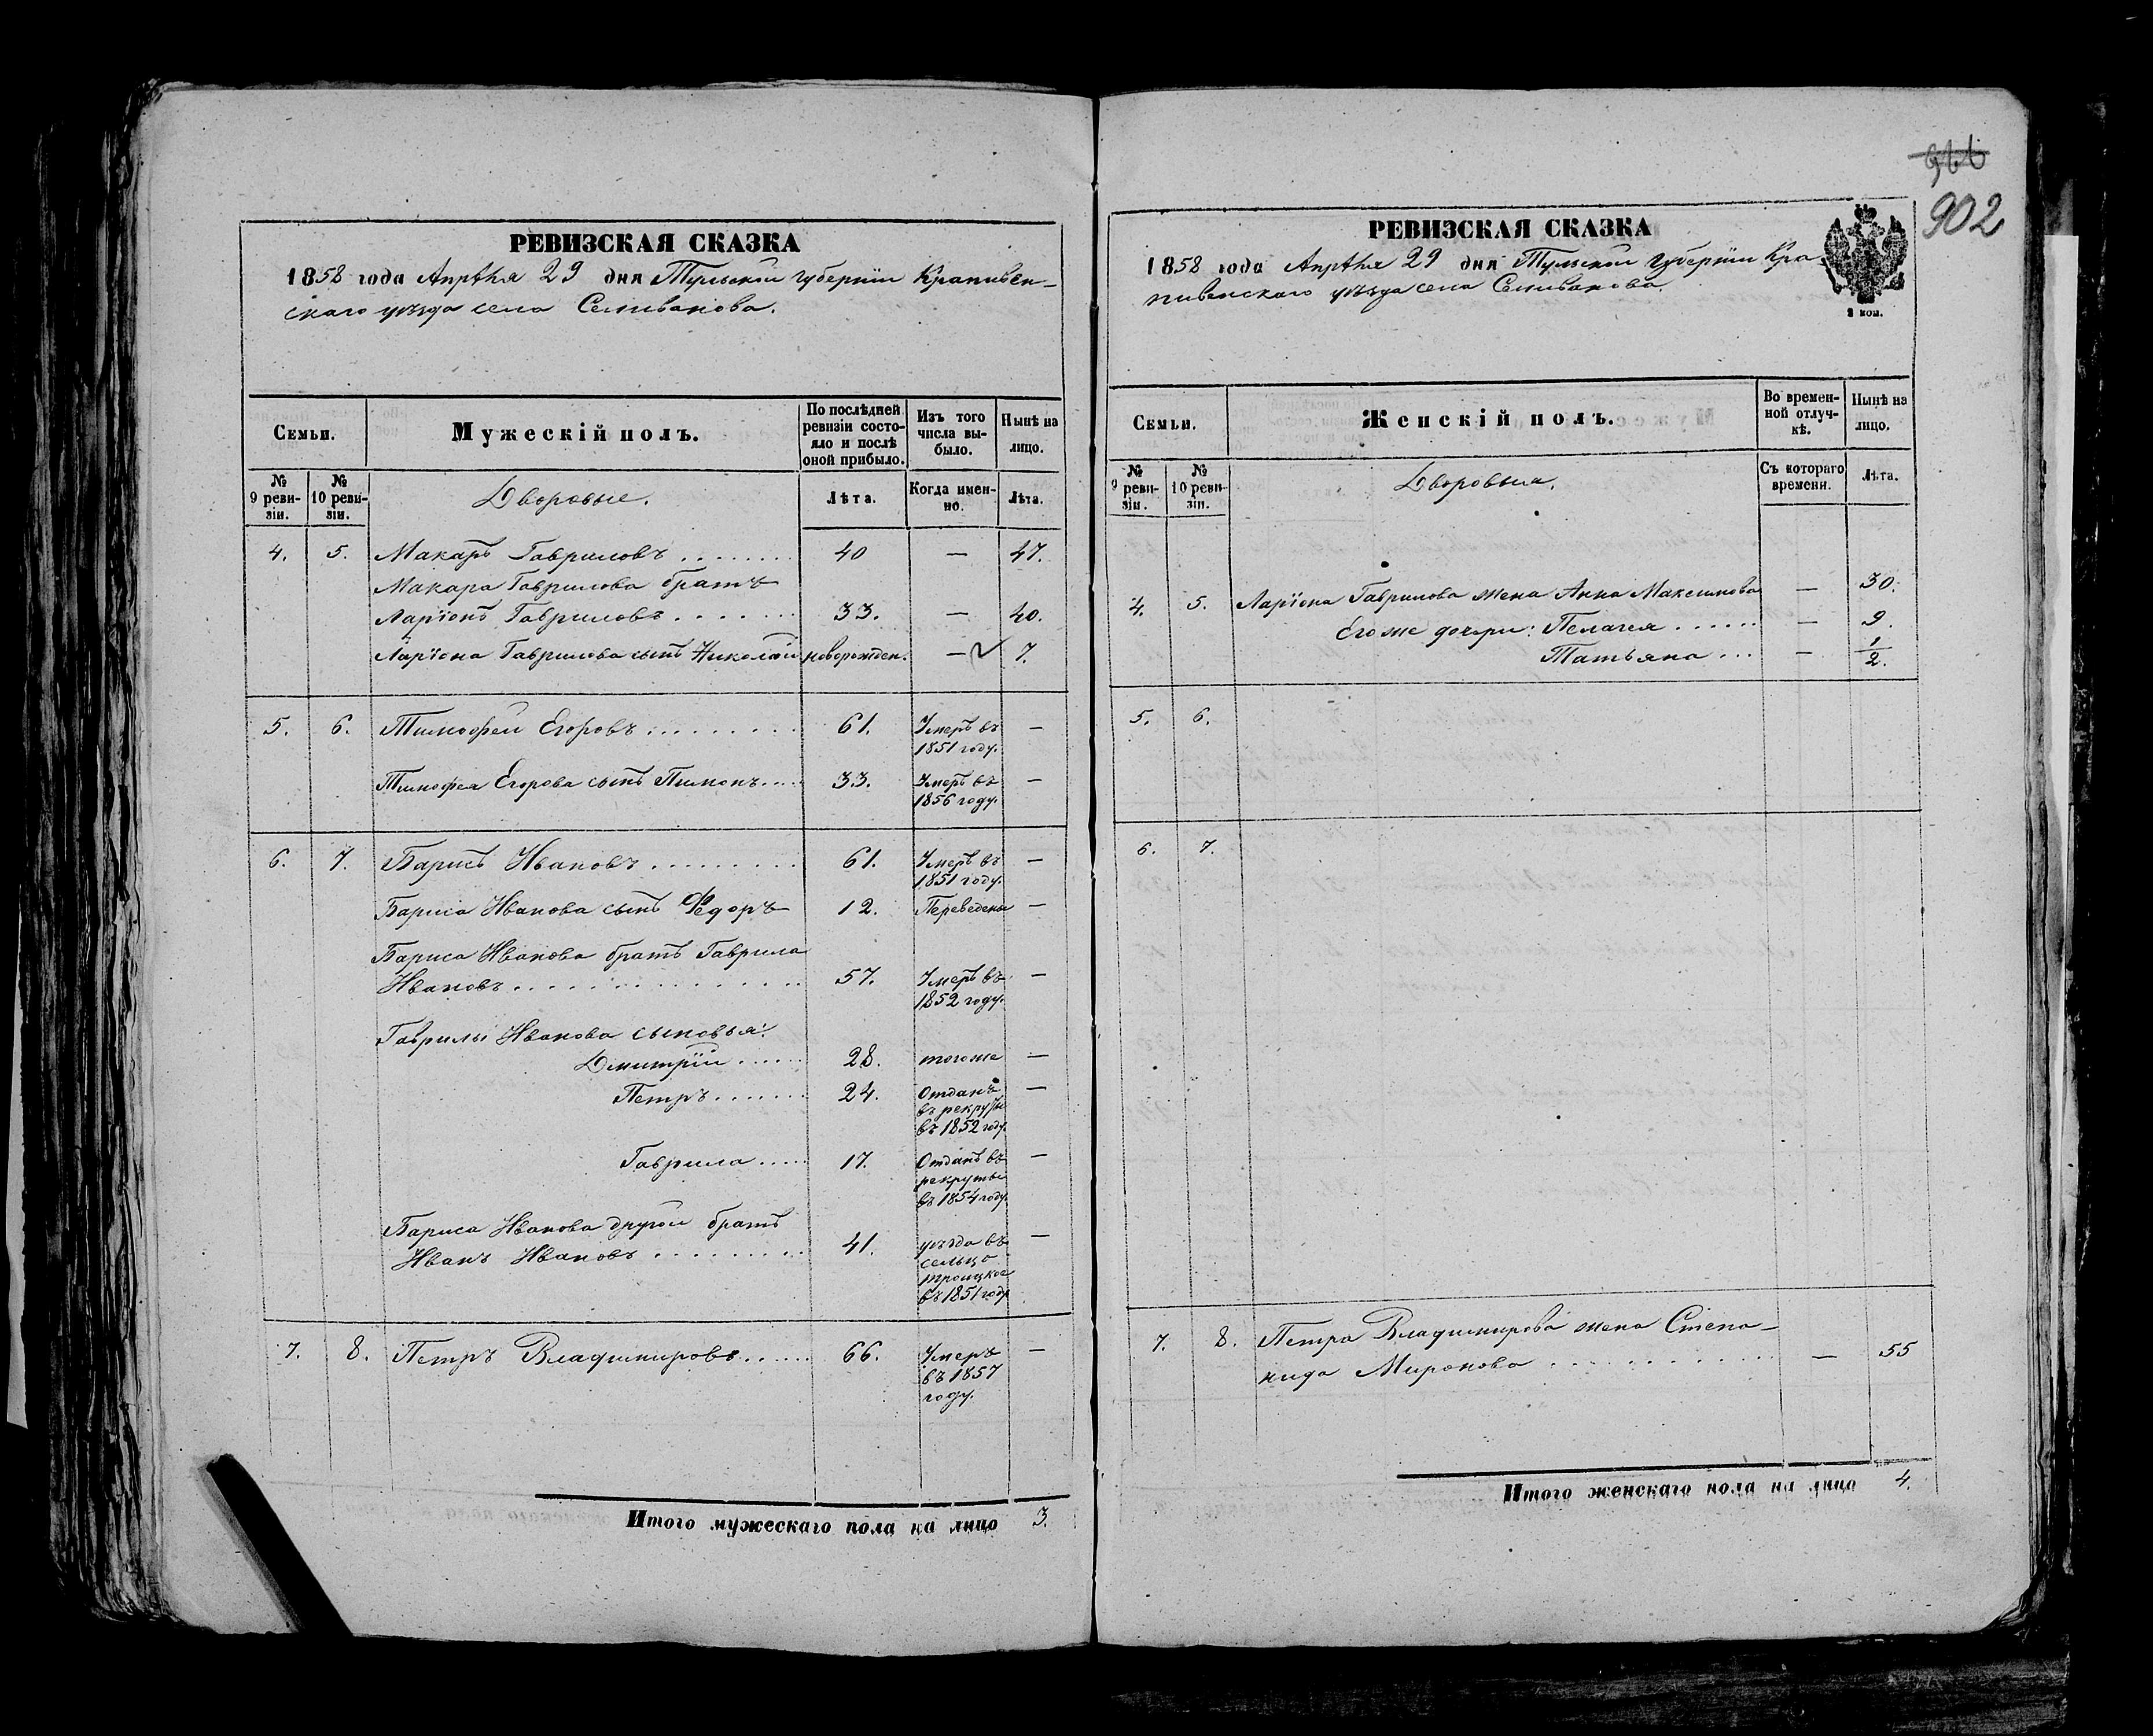 РЕВИЗСКАЯ СКАЗКА
1858 года Апрѣля 29 дня Тульской губернїи Крапивен-
скаго уѣзда села Селиванова.
Семьи.
Мужескій полъ.
По послѣдней ревизіи состо-
яло и послѣ оной прибыло.
Изъ того числа вы-
было.
Нынѣ на лицо.
№ 9 реви-
зіи.
№ 10 реви-
зіи.
Дворовые.
Лѣта.
Когда имен-
но.
Лѣта.
4. 5. Макаръ Гавриловъ 40 — 47.
Макара Гаврилова братъ
Ларїонъ Гавриловъ 33. — 40.
Ларїона Гаврилова сынъ Николай новорожден. — 7.
5. 6. Тимофей Егоровъ 61. Умеръ въ —
1851 году.
Тимофея Егорова сынъ Пимонъ 33. Умеръ въ —
1856 году.
6. 7. Барисъ Ивановъ 61. Умеръ въ —
1851 году.
Бариса Иванова сынъ Федоръ 12. Переведены —
Бариса Иванова братъ Гаврила
Ивановъ 57. Умеръ въ —
1852 году.
Гаврилы Иванова сыновья:
Дмитрїй 28. тогоже —
Петръ 24. Отданъ —
въ рекруты
въ 1852 году.
Гаврила 17. Отданъ въ —
рекруты
въ 1854 году.
Бариса Иванова другой братъ
Иванъ Ивановъ 41. уѣзда въ —
сельцо
троицкое
въ 1851 году
7. 8. Петръ Владимировъ 66. Умеръ —
въ 1857
году.
Итого мужескаго пола на лицо 3.
902
РЕВИЗСКАЯ СКАЗКА
1858 года Апрѣля 29 дня Тульской губернїи Кра-
пивенскаго уѣзда села Селиванова.
2 коп.
Семьи.
Женскій полъ.
Во времен-
ной отлуч-
кѣ.
Нынѣ на лицо.
№ 9 реви-
зіи.
№ 10 реви-
зіи.
Дворовыя.
Съ котораго времени.
Лѣта.
4. 5. Ларїона Гаврилова жена Анна Максимова — 30.
Его же дочери: Пелагея — 9.
Татьяна — 1/2.
5. 6.
6. 7.
7. 8. Петра Владимирова жена Степа-
нида Миронова — 55
Итого женскаго пола на лицо 4.